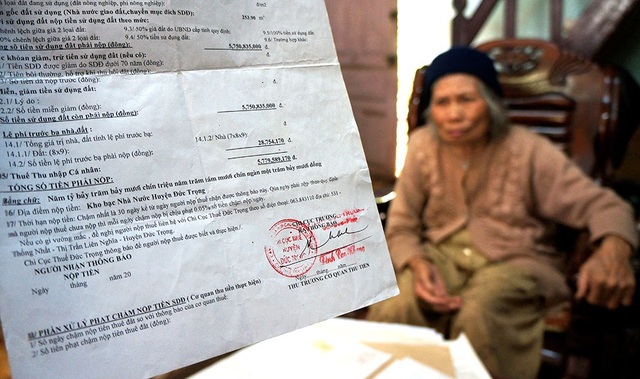 ồn gốc đất sử dụng (Nhà nước giao đất,chuyển mục đích SDĐ):
tiền sử dụng đất nộp theo mức: 253.90 m²
chênh lệch giữa giá 2 loại đất: 9.3/ 50% giá đất do UBND cấp tỉnh quy định: 9.5/100% tiền sử dụng đất:
0% chênh lệch giữa giá 2 loại đất: 9.4/ 50% tiền sử dụng đất: 9.6/ Trường hợp khác:
ng số tiền sử dụng đất phải nộp (đồng): 5,750,835,000 đ.
c khoản giảm, trừ tiền sử dụng đất (nếu có):
/ Tiền SDĐ được giảm do SDĐ dưới 70 năm (đồng):
2/ Tiền bồi thường, hỗ trợ khi thu hồi đất (đồng):
3/ Số tiền đã nộp trước (đồng):
Miễn, giảm tiền sử dụng đất:
2.1/ Lý do :
2.2/ Số tiền miễn giảm (đồng):
Số tiền sử dụng đất còn phải nộp (đồng): 5,750,835,000 đ.
Lệ phí trước bạ nhà,đất :
14.1/ Tổng giá trị nhà, đất tính lệ phí trước bạ:
14.1.1/ Đất (8x9): 14.1.2/ Nhà (7x8x9):
14.2/ Số tiền lệ phí trước bạ phải nộp (đồng): 28,754,170 đ.
15/ Thuế Thu nhập Cá nhân:
TỔNG SỐ TIỀN PHẢI NỘP: 5,779,589,170 đ.
Bằng chữ: Năm tỷ bảy trăm bảy mươi chín triệu năm trăm tám mươi chín ngàn một trăm bảy mươi đồng
16/ Địa điểm nộp tiền: Kho bạc Nhà Nước Huyện Đức Trọng
17/ Thời hạn nộp tiền: Chậm nhất là 30 ngày kể từ ngày người nộp thuế nhận được thông báo này. Qúa ngày phải nộp theo quy định
mà người nộp thuế chưa nộp thì mỗi ngày chậm nộp bị phạt 0.05% số tiền chậm nộp cho ngân sách.
Nếu có gì vướng mắc, đề nghị người nộp thuế liên hệ với Chi Cục Thuế Đức Trọng theo số điện thoại:
Thống Nhất - Thị Trấn Liên Nghĩa - Huyện Đức Trọng.
Chi Cục Thuế Đức Trọng thông báo để người nộp thuế được biết và thực hiện.
NGƯỜI NHẬN THÔNG BÁO
NỘP TIỀN
Ngày tháng năm 20
THÔNG BÁO
CHI CỤC TRƯỞNG
CHI CỤC THUẾ
HUYỆN
ĐỨC TRỌNG
Ngày tháng năm
THỦ TRƯỞNG CƠ QUAN THU TIỀN
II/ PHẦN XỬ LÝ PHẠT CHẬM NỘP TIỀN SDĐ ( Cơ quan thu tiền thực hiện)
1/ Số ngày chậm nộp tiền thuế đất so với thông báo của cơ quan thuế:
2/ Số tiền phạt chậm nộp tiền thuế đất (đồng):